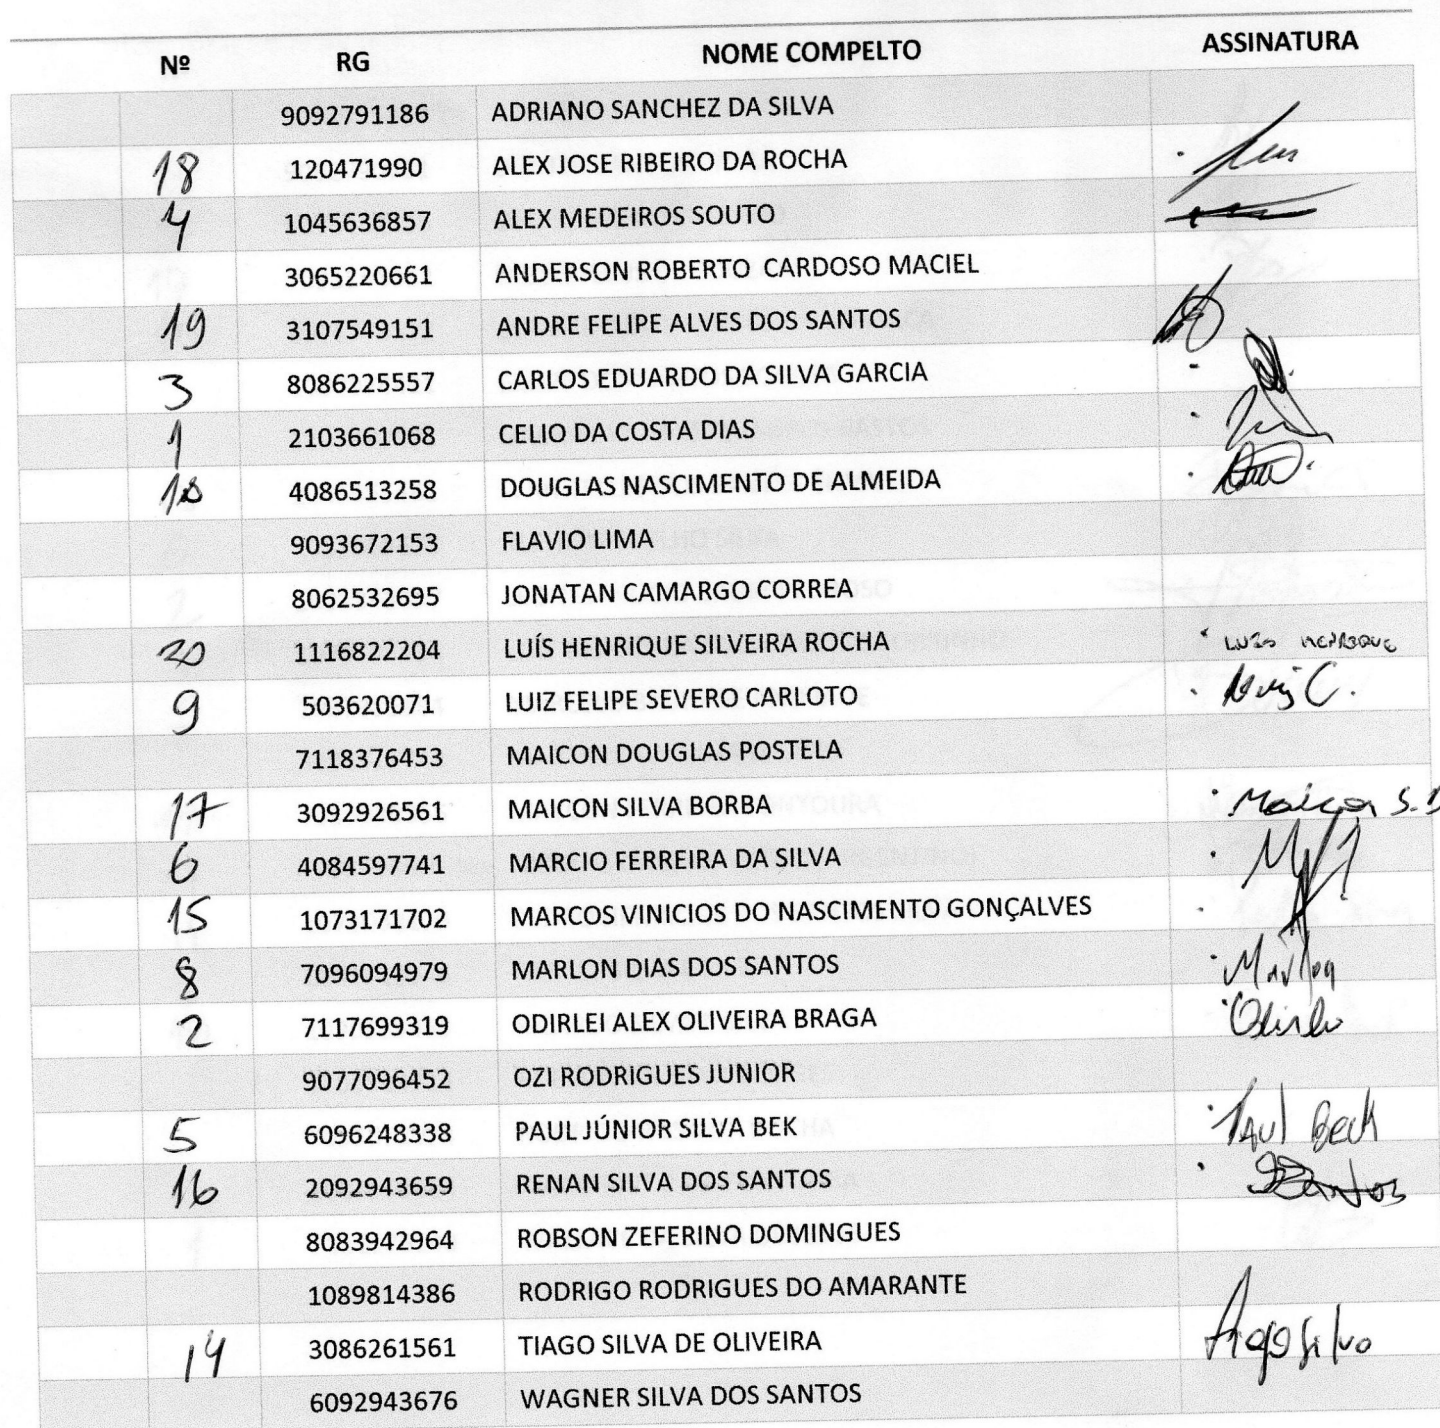 Nº RG NOME COMPELTO ASSINATURA
9092791186 ADRIANO SANCHEZ DA SILVA
18 120471990 ALEX JOSE RIBEIRO DA ROCHA
4 1045636857 ALEX MEDEIROS SOUTO
3065220661 ANDERSON ROBERTO CARDOSO MACIEL
19 3107549151 ANDRE FELIPE ALVES DOS SANTOS
3 8086225557 CARLOS EDUARDO DA SILVA GARCIA
1 2103661068 CELIO DA COSTA DIAS
4086513258 DOUGLAS NASCIMENTO DE ALMEIDA
9093672153 FLAVIO LIMA
8062532695 JONATAN CAMARGO CORREA
20 1116822204 LUÍS HENRIQUE SILVEIRA ROCHA LUIS HENRIQUE
9 503620071 LUIZ FELIPE SEVERO CARLOTO
7118376453 MAICON DOUGLAS POSTELA
17 3092926561 MAICON SILVA BORBA Maicon S.B
6 4084597741 MARCIO FERREIRA DA SILVA
15 1073171702 MARCOS VINICIOS DO NASCIMENTO GONÇALVES
8 7096094979 MARLON DIAS DOS SANTOS Marlon
2 7117699319 ODIRLEI ALEX OLIVEIRA BRAGA Odirlei
9077096452 OZI RODRIGUES JUNIOR
5 6096248338 PAUL JÚNIOR SILVA BEK Paul Beck
16 2092943659 RENAN SILVA DOS SANTOS Santos
8083942964 ROBSON ZEFERINO DOMINGUES
1089814386 RODRIGO RODRIGUES DO AMARANTE
14 3086261561 TIAGO SILVA DE OLIVEIRA Tiago Silva
6092943676 WAGNER SILVA DOS SANTOS